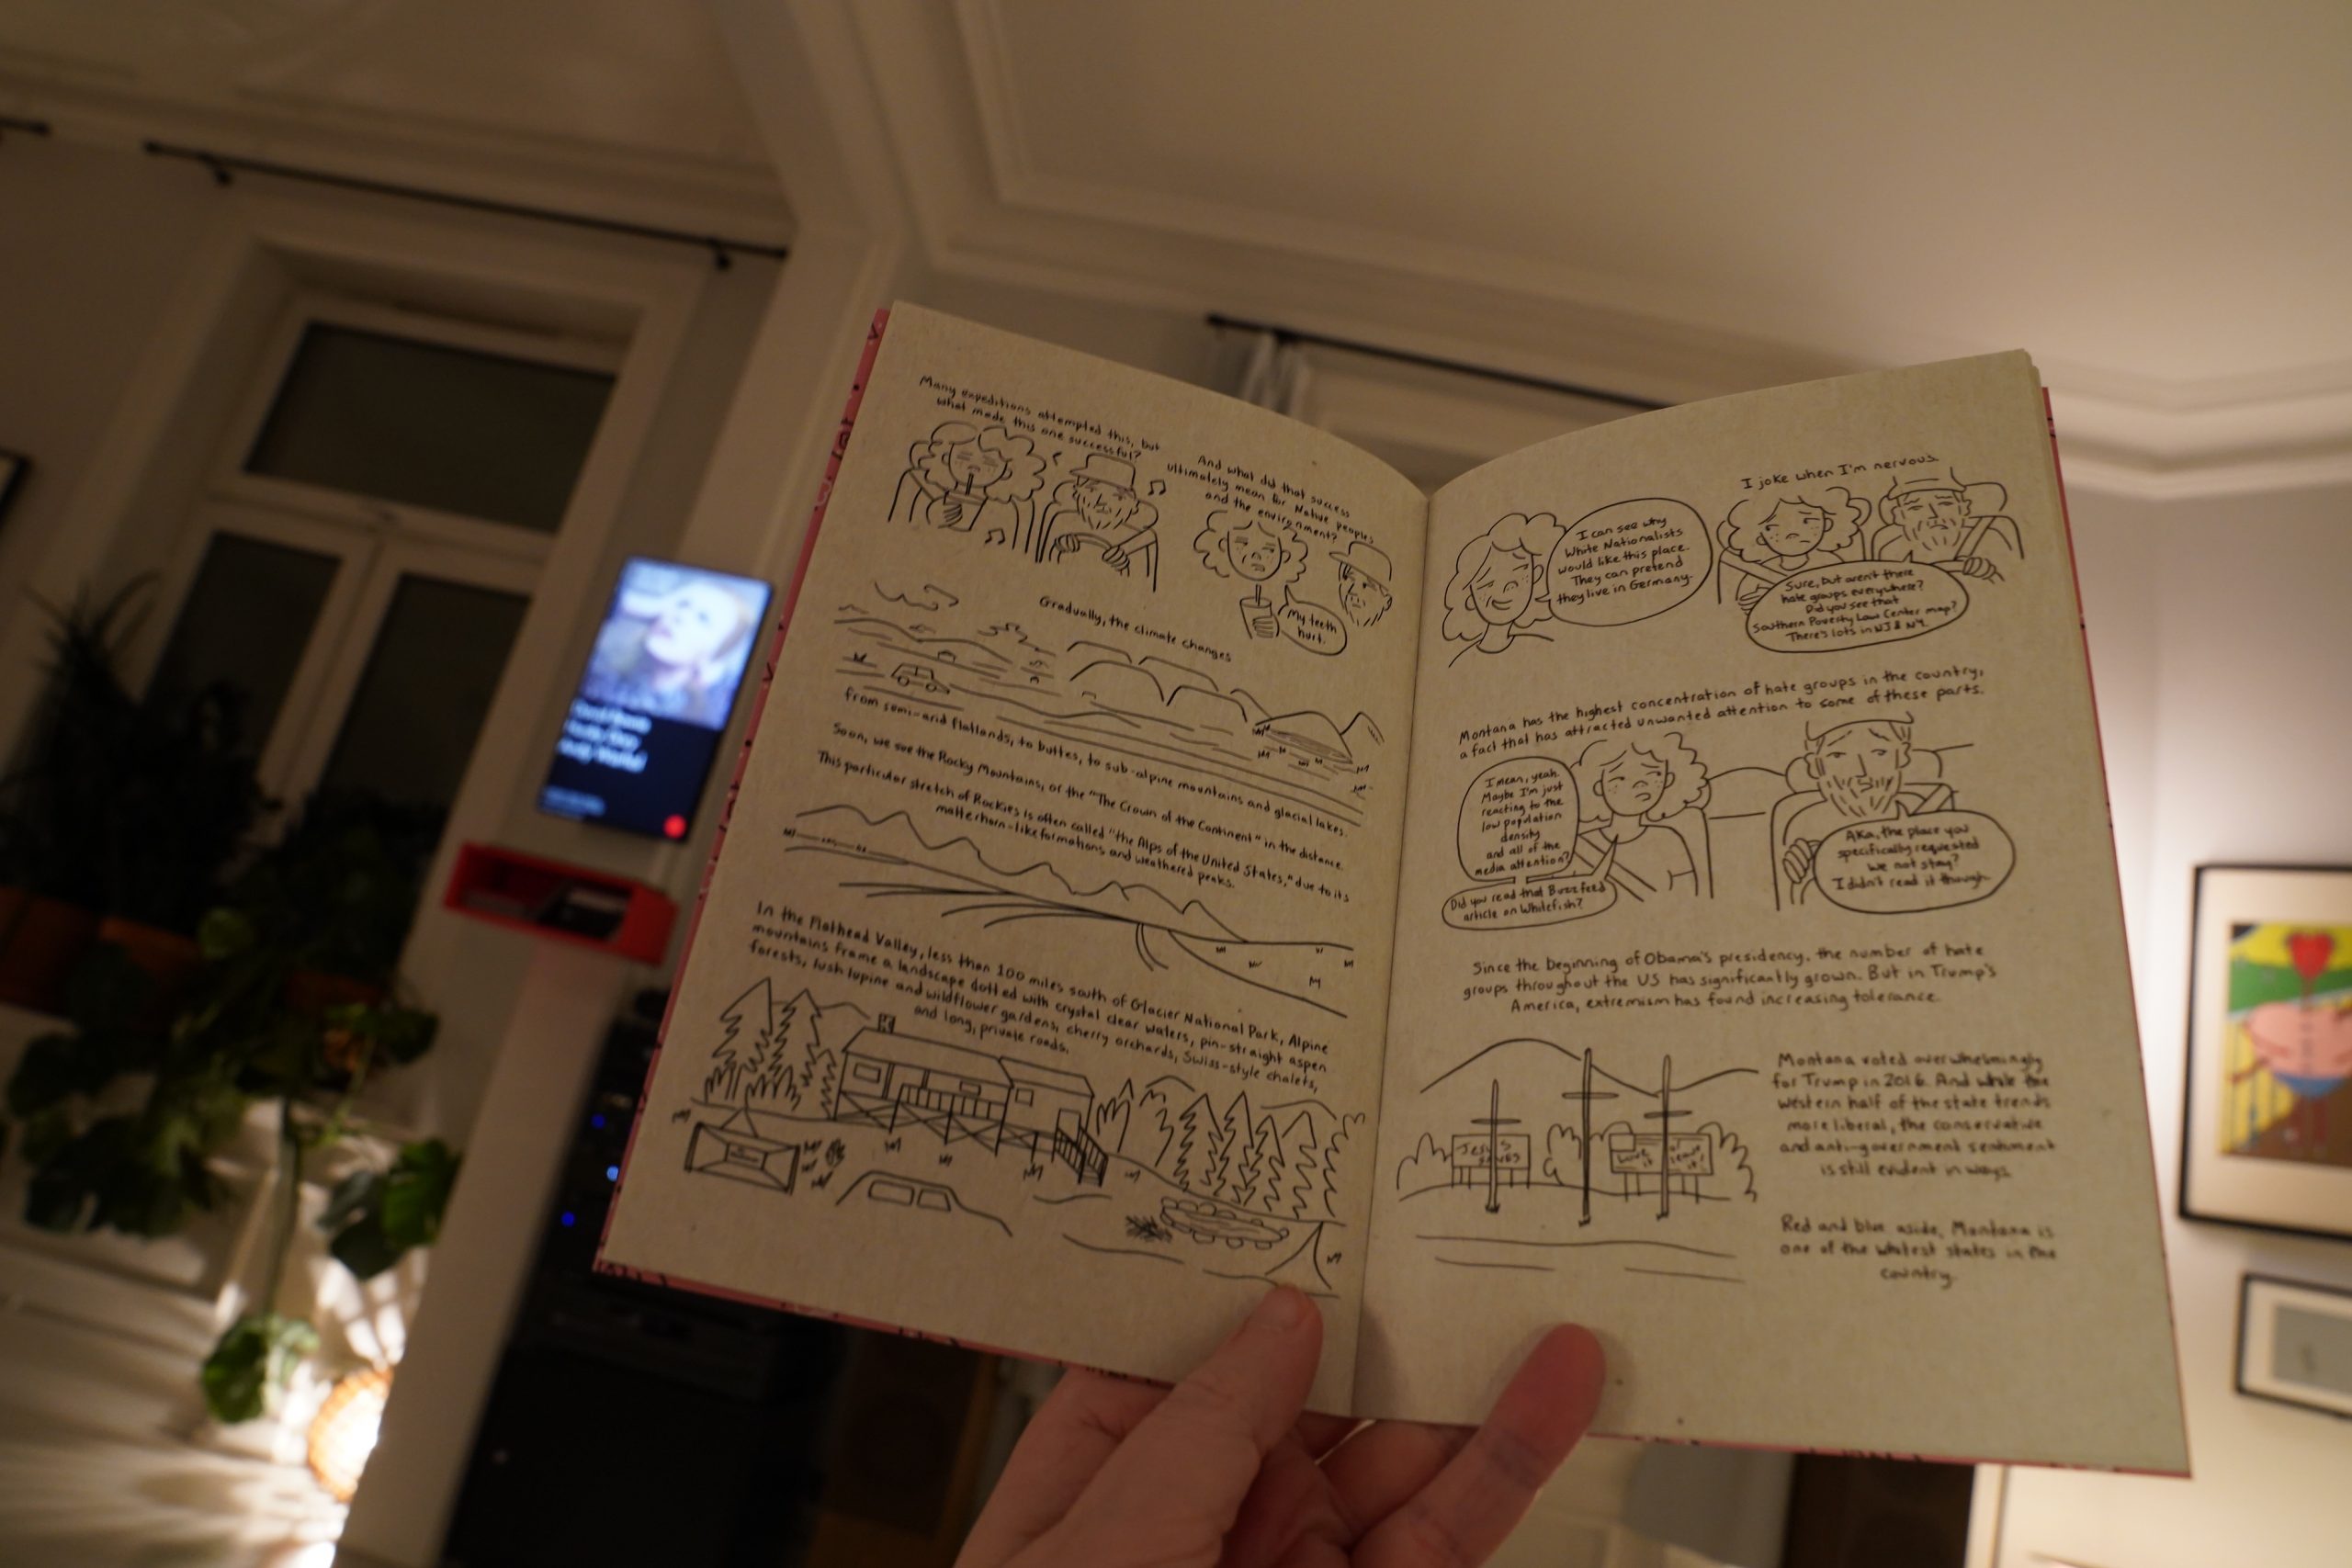 Many expeditions attempted this, but
what made this one successful?
And what did that success
ultimately mean for Native peoples
and the environment?
My teeth
hurt.
Gradually, the climate changes
from semi-arid flatlands, to buttes, to sub-alpine mountains and glacial lakes.
Soon, we see the Rocky Mountains, or the "The Crown of the Continent" in the distance.
This particular stretch of Rockies is often called "the Alps of the United States," due to its
matterhorn-like formations and weathered peaks.
In the Flathead Valley, less than 100 miles south of Glacier National Park, Alpine
mountains frame a landscape dotted with crystal clear waters, pin-straight aspen
forests, lush lupine and wildflower gardens, cherry orchards, Swiss-style chalets,
and long, private roads.
I joke when I'm nervous.
I can see why
White Nationalists
would like this place.
They can pretend
they live in Germany.
Sure, but aren't there
hate groups everywhere?
Did you see that
Southern Poverty Law Center map?
There's lots in NJ & NY.
Montana has the highest concentration of hate groups in the country,
a fact that has attracted unwanted attention to some of these parts.
I mean, yeah.
Maybe I'm just
reacting to the
low population
density
and all of the
media attention?
Did you read that Buzzfeed
article on Whitefish?
AKA, the place you
specifically requested
we not stay?
I didn't read it though.
Since the beginning of Obama's presidency, the number of hate
groups throughout the US has significantly grown. But in Trump's
America, extremism has found increasing tolerance.
Jesus
saves
Montana voted overwhelmingly
for Trump in 2016. And while the
western half of the state trends
more liberal, the conservative
and anti-government sentiment
is still evident in ways.
Red and blue aside, Montana is
one of the whitest states in the
country.